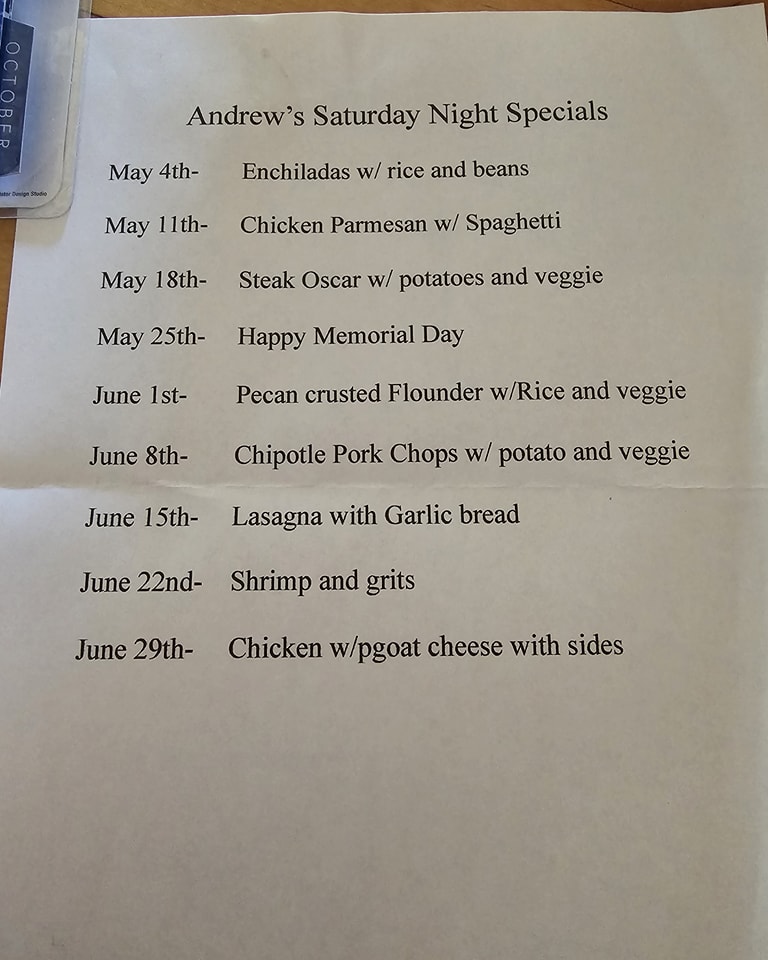 OCTOBER
Design Studio
Andrew's Saturday Night Specials
May 4th- Enchiladas w/ rice and beans
May 11th- Chicken Parmesan w/ Spaghetti
May 18th- Steak Oscar w/ potatoes and veggie
May 25th- Happy Memorial Day
June 1st- Pecan crusted Flounder w/Rice and veggie
June 8th- Chipotle Pork Chops w/ potato and veggie
June 15th- Lasagna with Garlic bread
June 22nd- Shrimp and grits
June 29th- Chicken w/pgoat cheese with sides